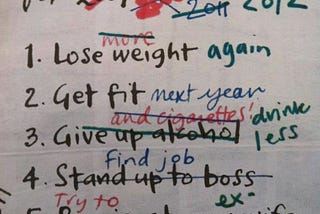 2011 2012
more
1. Lose weight again
2. Get fit next year
and cigarettes' drink
3. Give up alcohol less
find job
4. Stand up to boss
Try to ex-